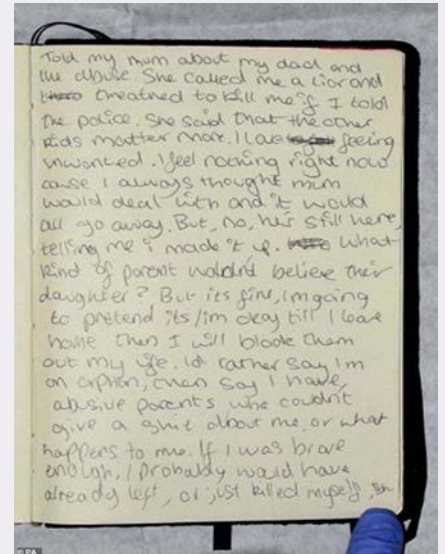 Told my mum about my dad and
the abuse. She called me a liar and
threatned to kill me if I told
the police. She said that the other
kids matter more. I love feeling
unwonted. I feel nothing right now
cause I always thought mum
would deal with and it would
all go away. But, no, he's still here,
telling me i made it up. What
kind of parent wouldn't believe their
daughter? But its fine, im going
to pretend its/im okay till I leave
home then I will block them
out my life. Id rather say I'm
an orphan, then say I have,
abusive parents who couldn't
give a shit about me, or what
happens to me. If I was brave
enough, I probably would have
already left, or just killed myself,
© PA